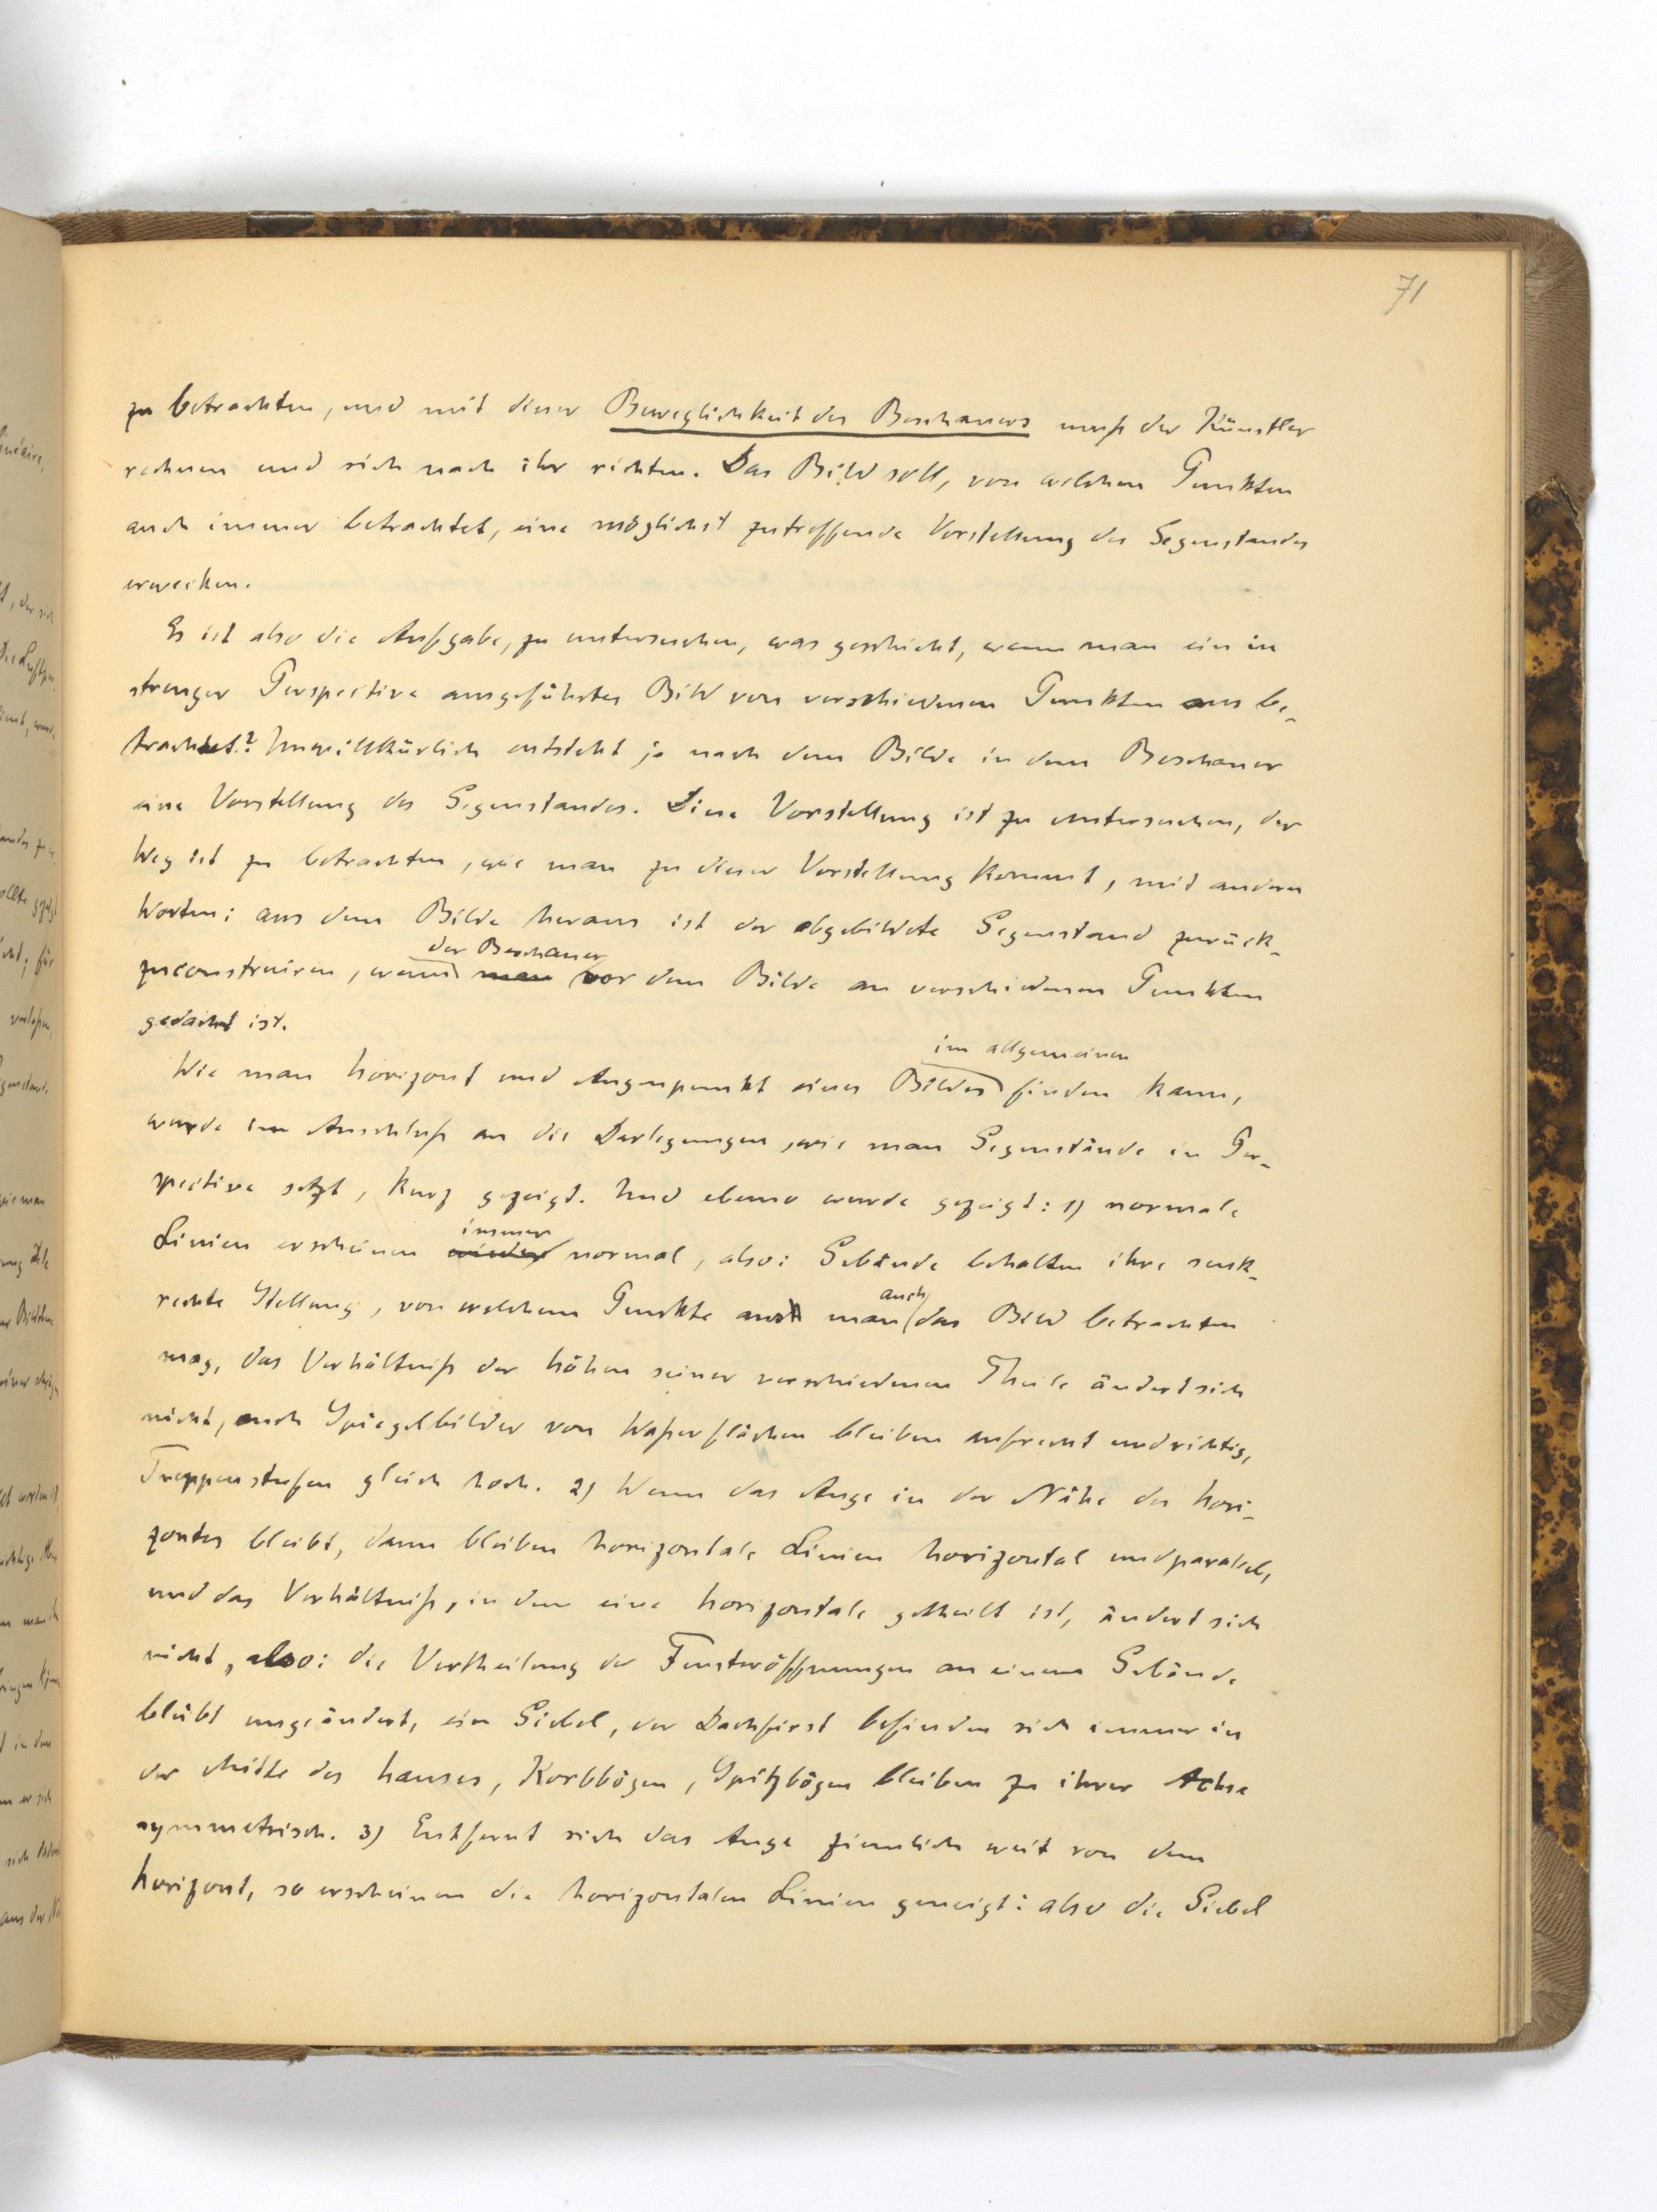 71
zu betrachten, und mit dieser Beweglichkeit des Beschauers muß der Künstler
rechnen und sich nach ihr richten. Das Bild soll, von welchen Punkten
auch immer betrachtet, eine möglichst zutreffende Vorstellung des Gegenstandes
erwecken.
Es ist also die Aufgabe, zu untersuchen, was geschieht, wenn man ein in
strenger Perspective ausgeführtes Bild von verschiedenen Punkten aus be-
trachtet? Unwillkürlich entsteht ja nach dem Bilde in dem Beschauer
eine Vorstellung des Gegenstandes. Diese Vorstellung ist zu untersuchen, der
Weg ist zu betrachten, wie man zu dieser Vorstellung kommt, mit andern
Worten: aus dem Bilde heraus ist der abgebildete Gegenstand zurück-
der Beschauer
zuconstruiren, wenn man vor dem Bilde an verschiedenen Punkten
gedacht ist.
im allgemeinen
Wie man Horizont und Augenpunkt eines Bildes finden kann,
wurde im Anschluß an die Darlegungen, wie man Gegenstände in Per-
spective setzt, kurz gezeigt. Und ebenso wurde gezeigt: 1) normale
immer
Linien erscheinen wieder normal, also: Gebäude behalten ihre senk-
auch
rechte Stellung, von welchem Punkte aus man das Bild betrachten
mag, das Verhältniß der Höhen seiner verschiedenen Theile ändert sich
nicht, auch Spiegelbilder von Waßerflächen bleiben aufrecht und richtig,
Treppenstufen gleich hoch. 2) Wenn das Auge in der Nähe des Hori-
zontes bleibt, dann bleiben horizontale Linien horizontal und paralell,
und das Verhältniß, in dem eine Horizontale getheilt ist, ändert sich
nicht, also: die Vertheilung der Fensteröffnungen an einem Gebäude
bleibt ungeändert, ein Giebel, der Dachfirst befinden sich immer in
der Mitte des Hauses, Korbbögen, Spitzbögen bleiben zu ihrer Achse
symmetrisch. 3) Entfernt sich das Auge ziemlich weit von dem
Horizont, so erscheinen die horizontalen Linien geneigt: also die Giebel